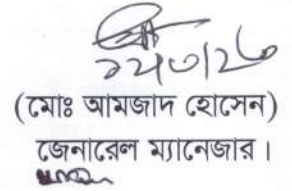 (মোঃ আমজাদ হোসেন)
জেনারেল ম্যানেজার।